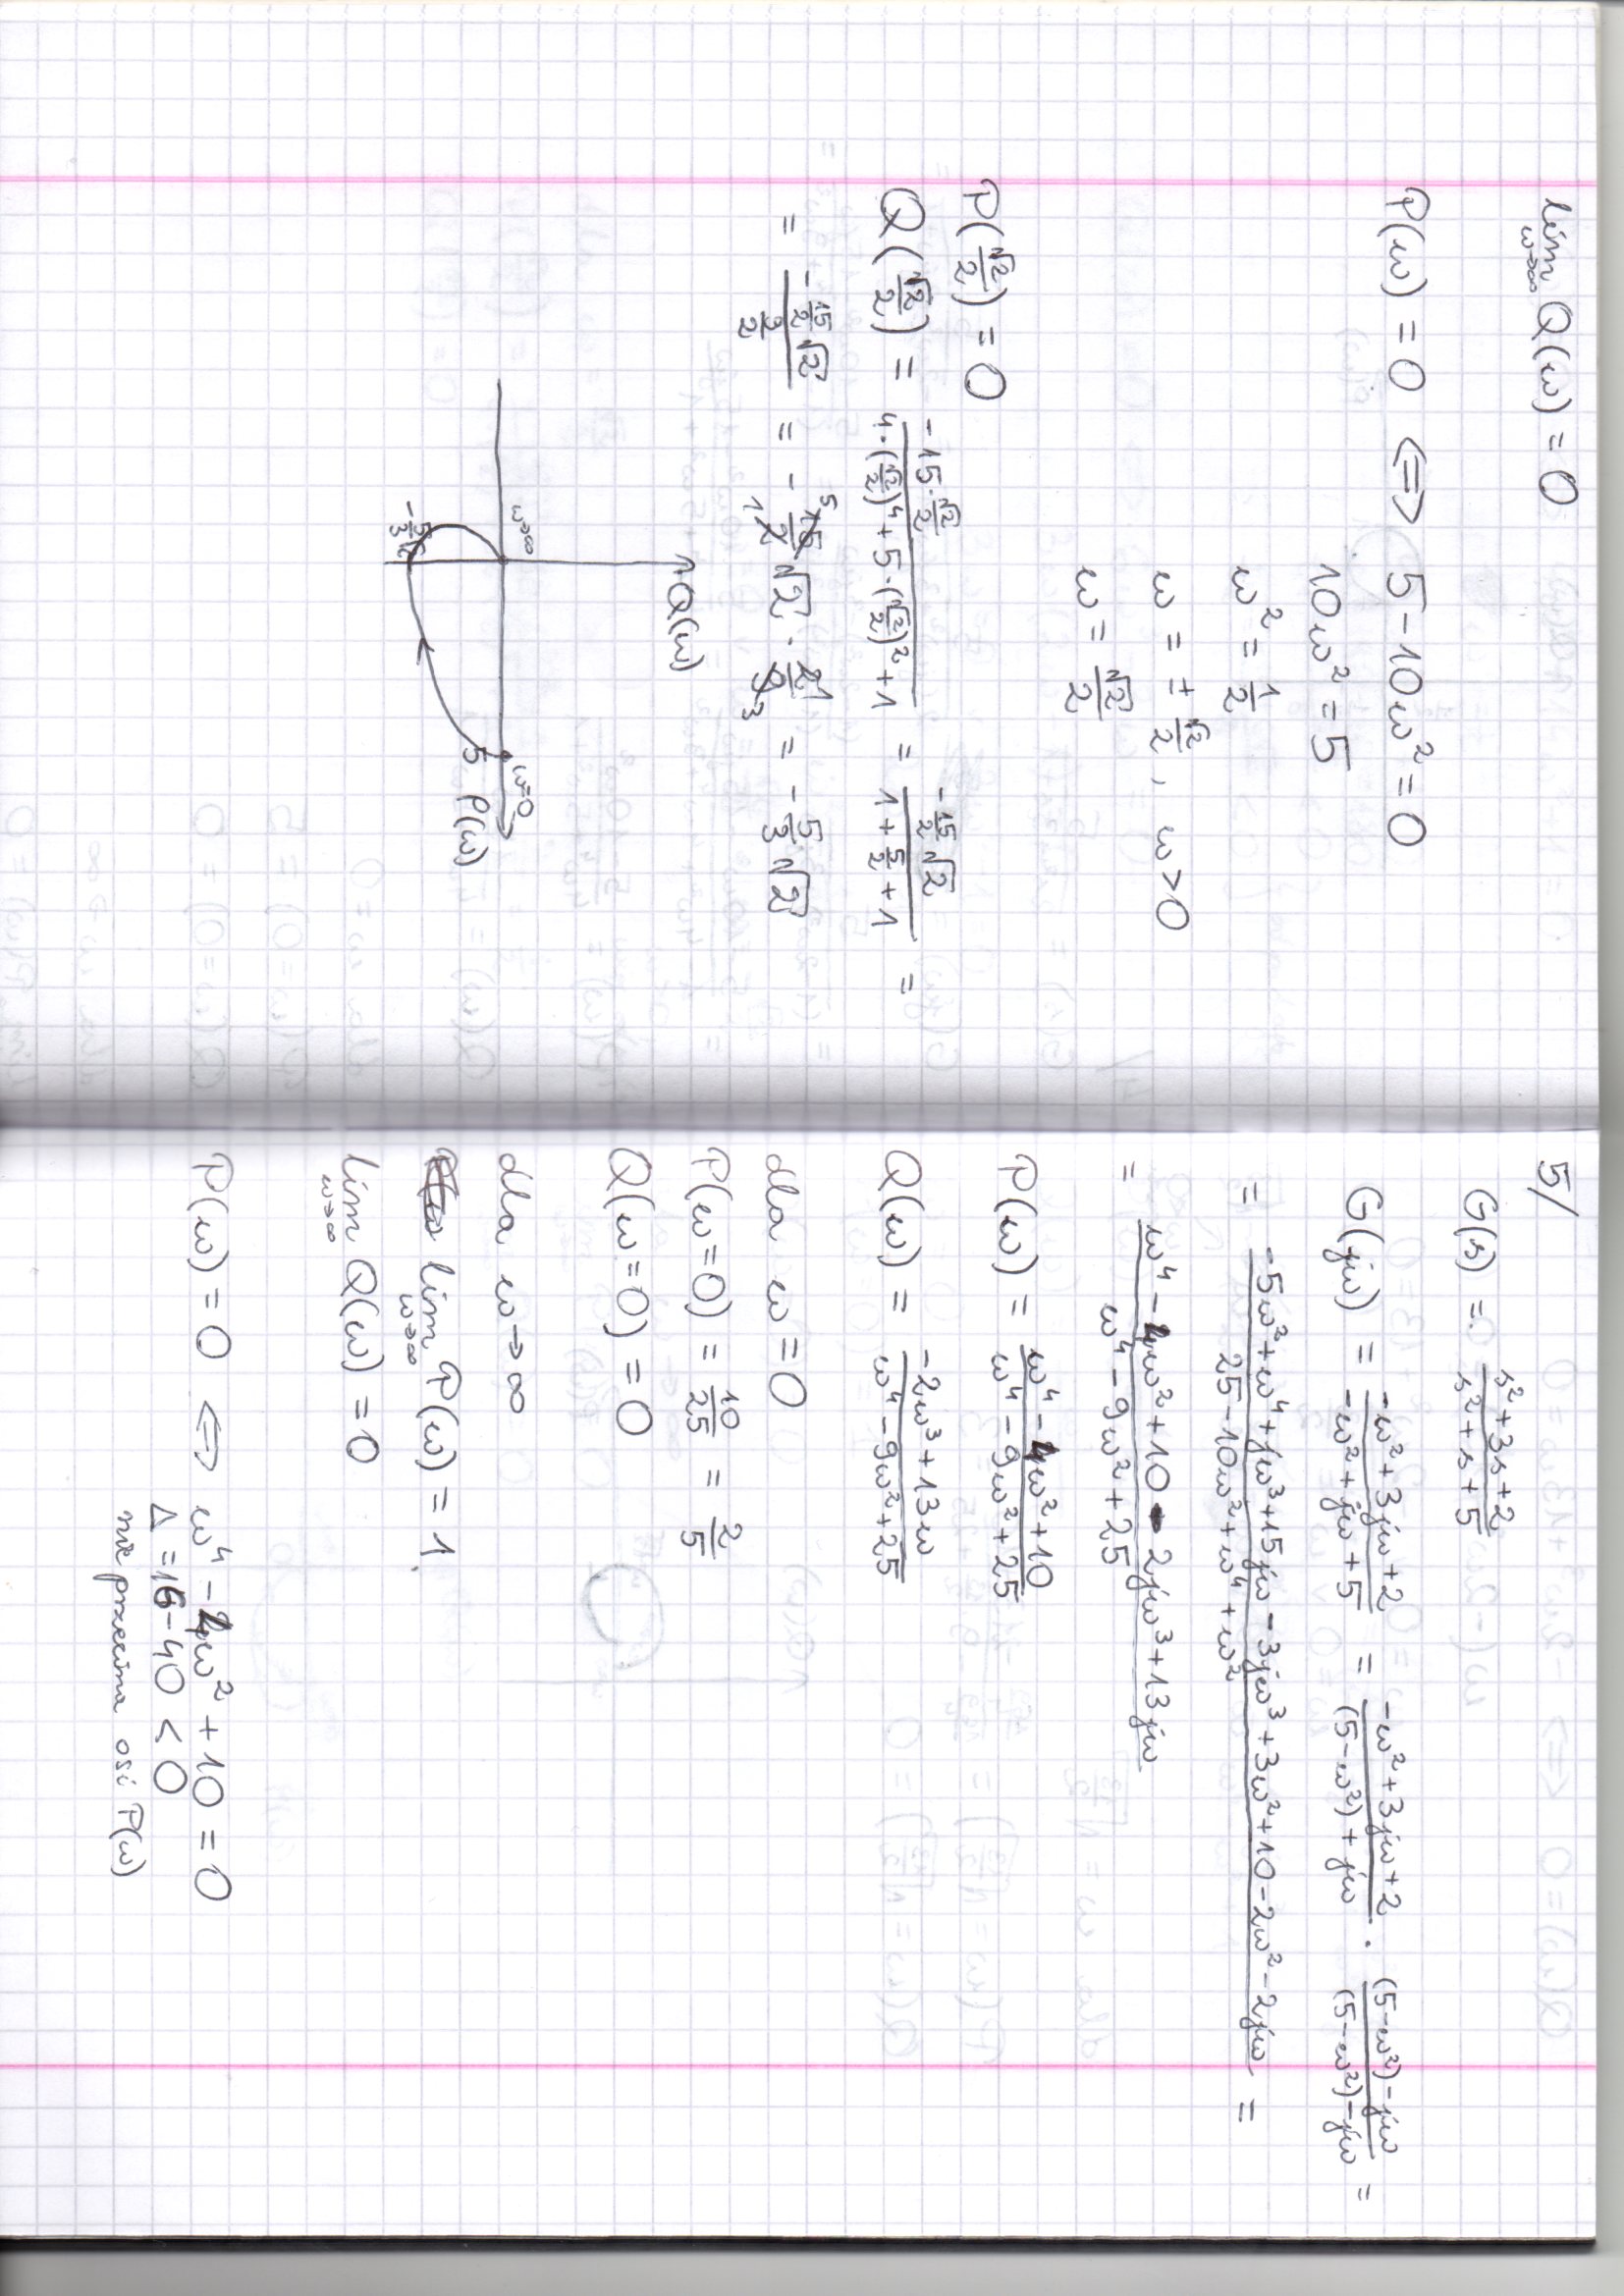 lim Q(ω) = 0
ω→∞
P(ω) = 0 ⟺ 5-10ω² = 0
10ω² = 5
ω² = 1/2
ω = ± √2/2 , ω>0
ω = √2/2
P(√2/2) = 0
Q(√2/2) = (-15·√2/2)/(4·(√2/2)⁴+5·(√2/2)²+1) = (-15/2 √2)/(1+5/2+1) =
= (-15/2 √2)/(9/2) = - 15/2 √2 · 2/9 = - 5/3 √2
5 1 1 3
Q(ω)
ω→∞ ω=0
5 P(ω)
-5/3√2
5/
G(s) = (s²+3s+2)/(s²+s+5)
G(jω) = (-ω²+3jω+2)/(-ω²+jω+5) = (-ω²+3jω+2)/((5-ω²)+jω) · ((5-ω²)-jω)/((5-ω²)-jω) =
= (-5ω²+ω⁴+jω³+15jω-3jω³+3ω²+10-2ω²-2jω)/(25-10ω²+ω⁴+ω²) =
= (ω⁴-4ω²+10-2jω³+13jω)/(ω⁴-9ω²+25)
P(ω) = (ω⁴-4ω²+10)/(ω⁴-9ω²+25)
Q(ω) = (-2ω³+13ω)/(ω⁴-9ω²+25)
dla ω=0
P(ω=0) = 10/25 = 2/5
Q(ω=0) = 0
dla ω→∞
lim P(ω) = 1
ω→∞
lim Q(ω) = 0
ω→∞
P(ω) = 0 ⟺ ω⁴-4ω²+10 = 0
Δ = 16-40 < 0
nie przecina osi P(ω)